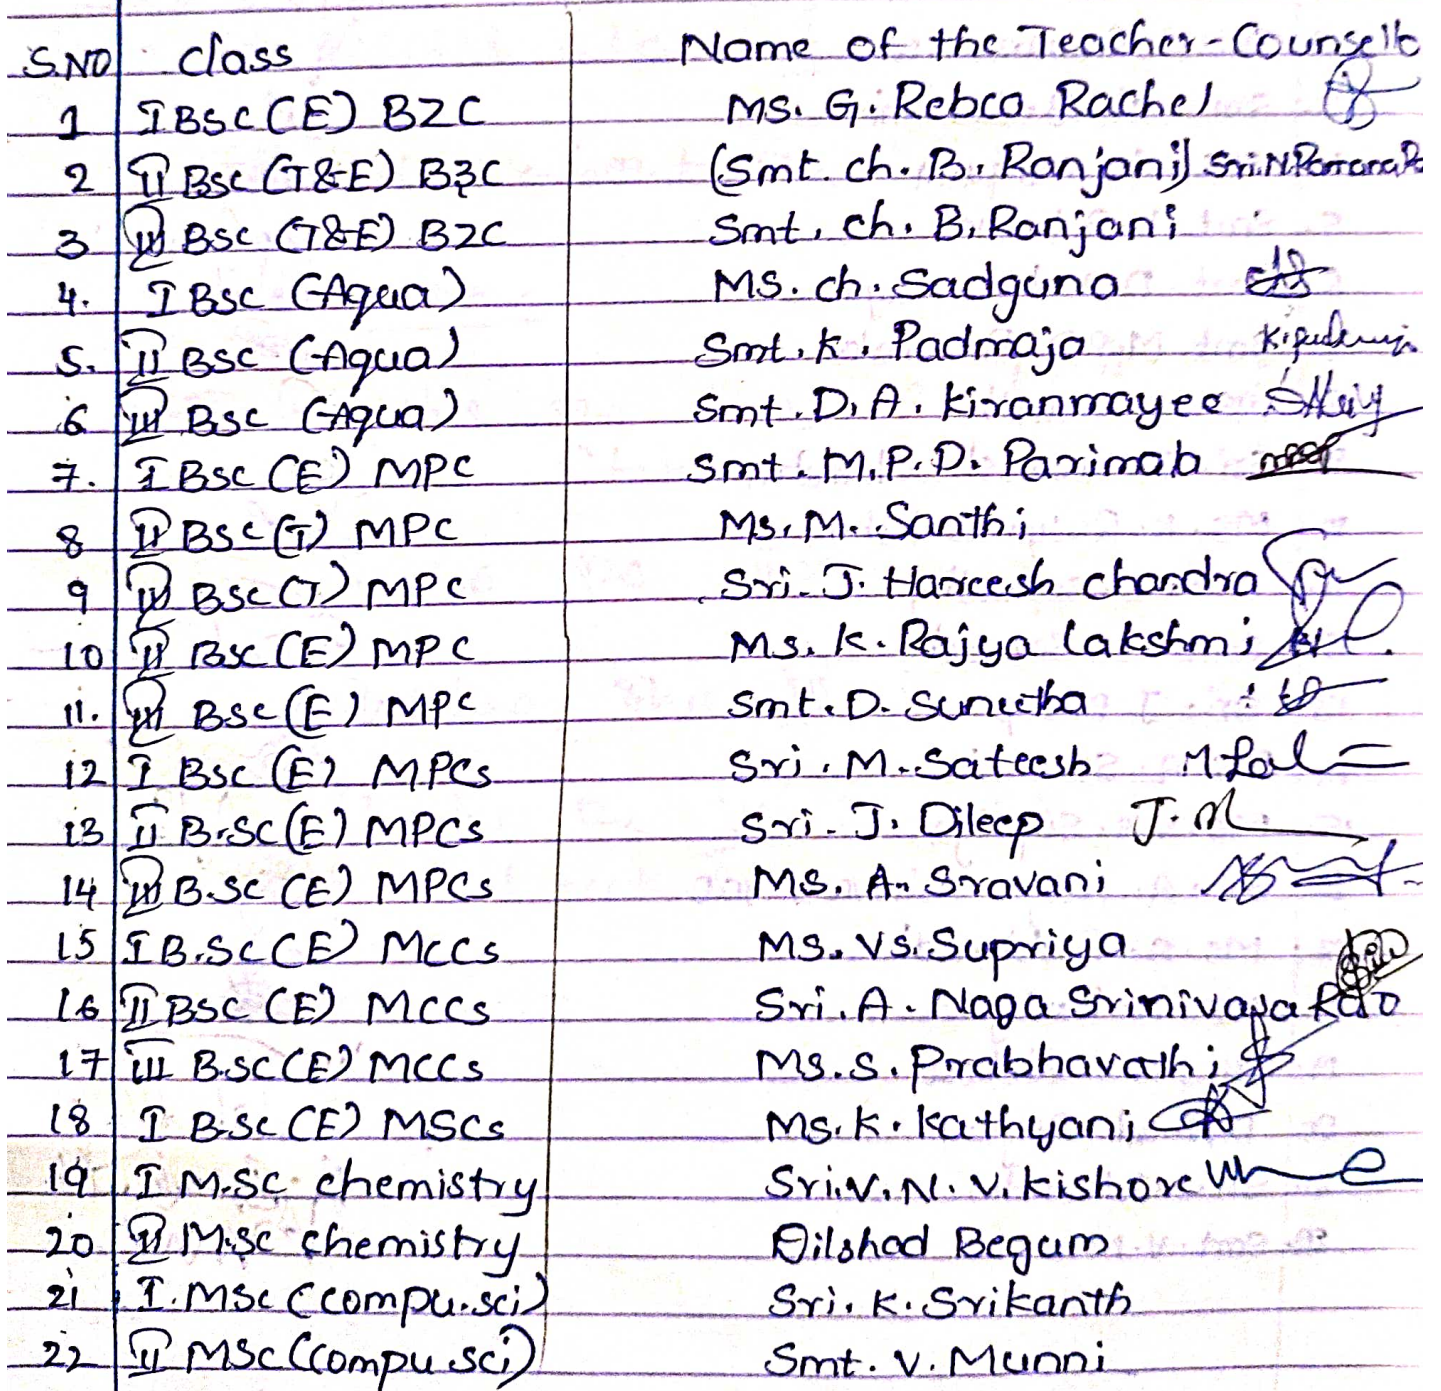 S.NO class Name of the Teacher-Counsello
1 I BSC (E) BZC MS. G. Rebca Rachel
2 II BSC (T&E) BZC (Smt. ch. B. Ranjani) Sri.N.Ramana
3 III BSC (T&E) BZC Smt. ch. B. Ranjani
4. I BSC (Aqua) MS. ch. Sadguna
5. II BSC (Aqua) Smt. K. Padmaja K.Padmaja
6 III BSC (Aqua) Smt. D. A. Kiranmayee
7. I BSC (E) MPC Smt. M. P. D. Parimala
8 II BSC (T) MPC Ms. M. Santhi
9 III BSC (T) MPC Sri. J. Hareesh chandra
10 II BSC (E) MPC Ms. K. Rajya Lakshmi
11. III BSC (E) MPC Smt. D. Suneetha
12 I BSC (E) MPCs Sri. M. Sateesh
13 II B.SC (E) MPCs Sri. J. Dileep
14 III B.SC (E) MPCs MS. A. Sravani
15 I B.SC (E) MCCs MS. VS. Supriya
16 II BSC (E) MCCs Sri. A. Naga Srinivasa Rao
17 III B.SC (E) MCCs MS. S. Prabhavathi
18 I B.SC (E) MSCs MS. K. Kathyani
19 I M.SC chemistry Sri. V. N. V. Kishore
20 II M.SC chemistry Dilshad Begum
21 I. MSC (compu.sci) Sri. K. Srikanth
22 II MSC (compu sci) Smt. V. Munni